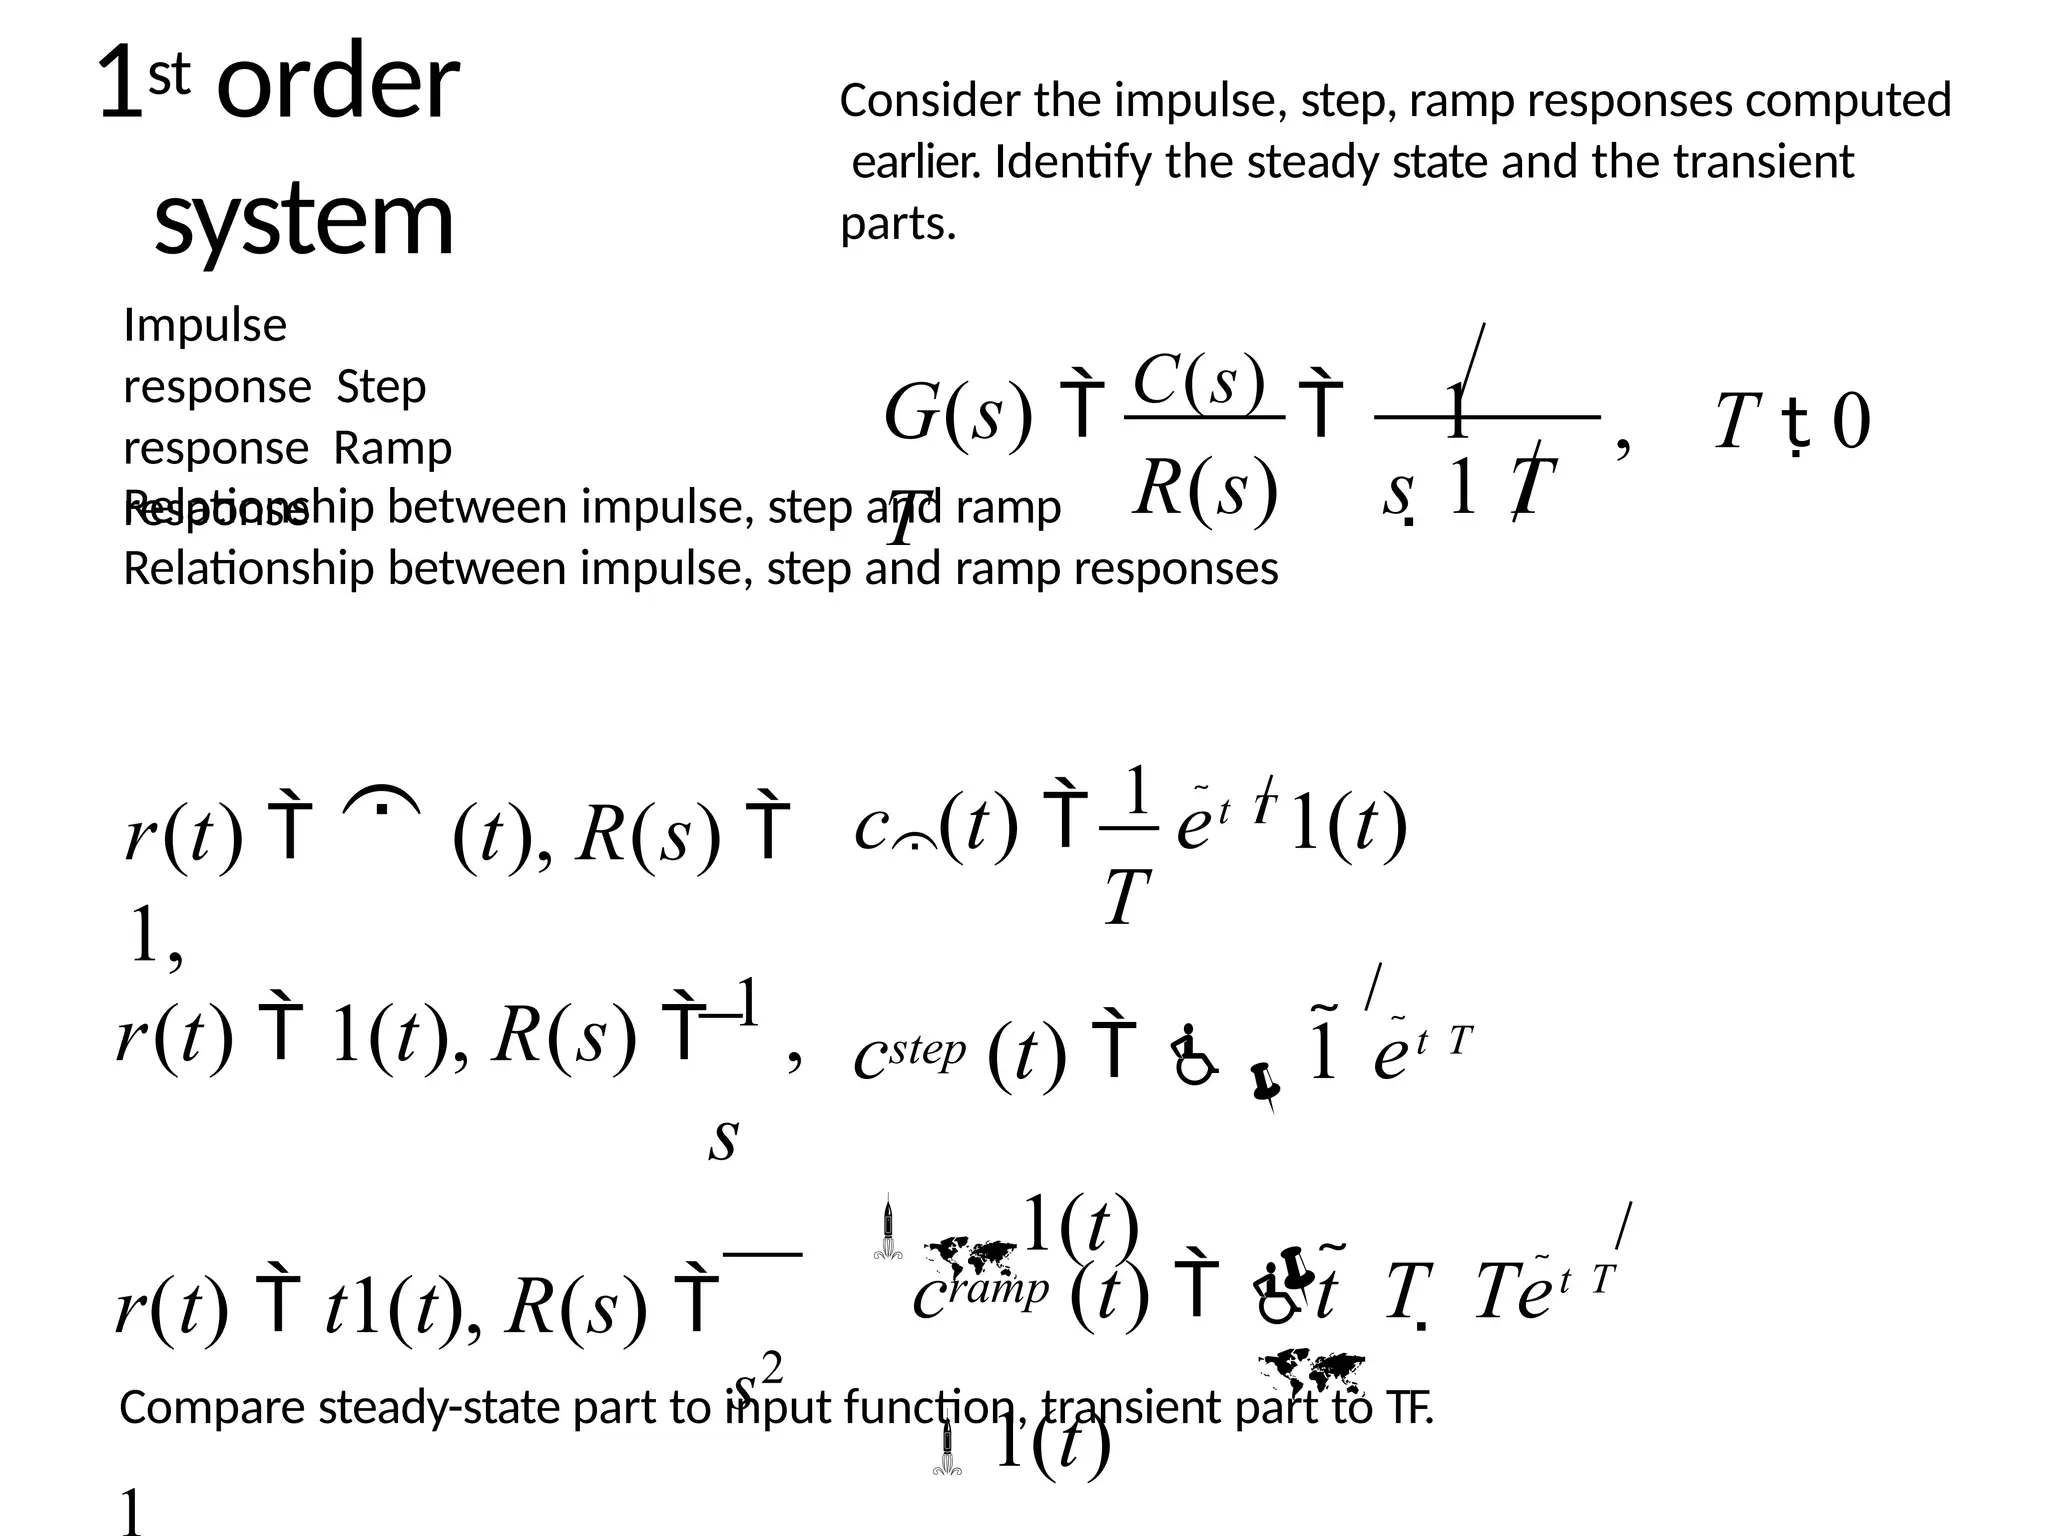 1st order
system
Consider the impulse, step, ramp responses computed
earlier. Identify the steady state and the transient
parts.
Impulse
response Step
response Ramp
response
G(s) T̀ C(s) T̀ 1 / , T ṭ 0
T R(s) s . 1 / T
Relationship between impulse, step and ramp
Relationship between impulse, step and ramp responses
r(t) T̀ (t), R(s) T̀
1,
c (t) T̀ 1 e ˜ t / T 1(t)
T
r(t) T̀ 1(t), R(s) T̀ 1 ,
s
cstep (t) T̀ ♿ 1 ˜ e ˜ t / T
1(t)
r(t) T̀ t1(t), R(s) T̀
s2
cramp (t) T̀ ♿ t ˜ T . Te ˜ t / T
1(t)
Compare steady-state part to input function, transient part to TF.
1